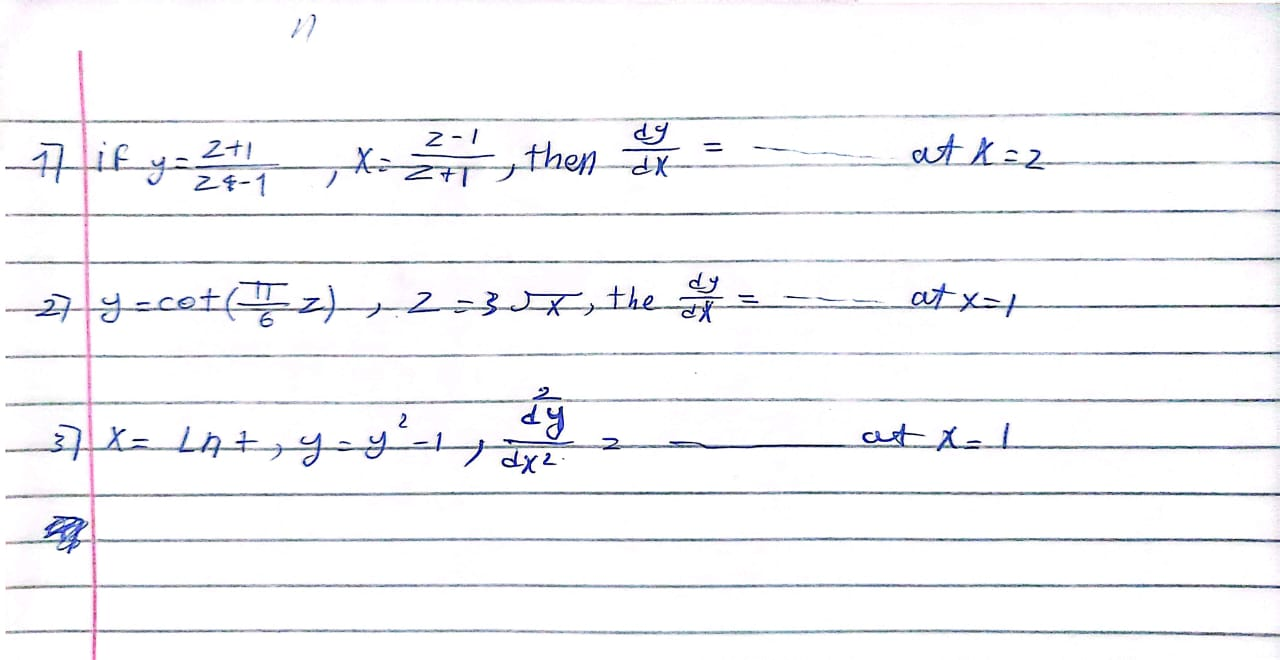 1) if y = (z+1)/(z-1) , x = (z-1)/(z+1) , then dy/dx = ------ at x=2
2) y = cot(π/6 z) , z = 3√x , the dy/dx = ------ at x=1
3) x = Ln t , y = y²-1 , d²y/dx² = ------ at x=1